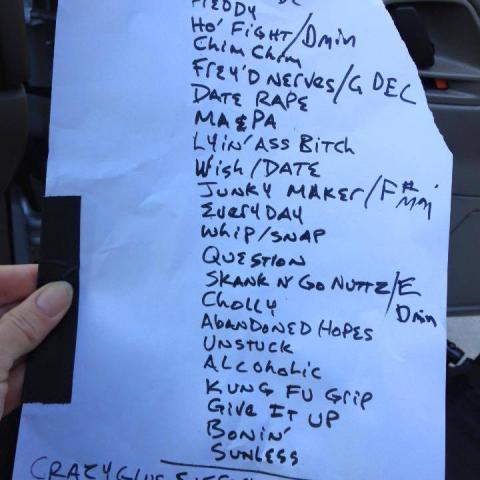 FREDDY
HO' FIGHT/Dmin
Chim Chim
FREY'D NERVES/G DEC
DATE RAPE
MA & PA
LYIN' ASS BITCH
Wish/DATE
JUNKY MAKER/F# Min
EVERYDAY
WHIP/SNAP
QUESTION
SKANK N' GO NUTTZ/E
CHOLLY Dmin
ABANDONED HOPES
UNSTUCK
ALCOHOLIC
KUNG FU GRIP
GIVE IT UP
BONIN'
SUNLESS
CRAZY GLUE